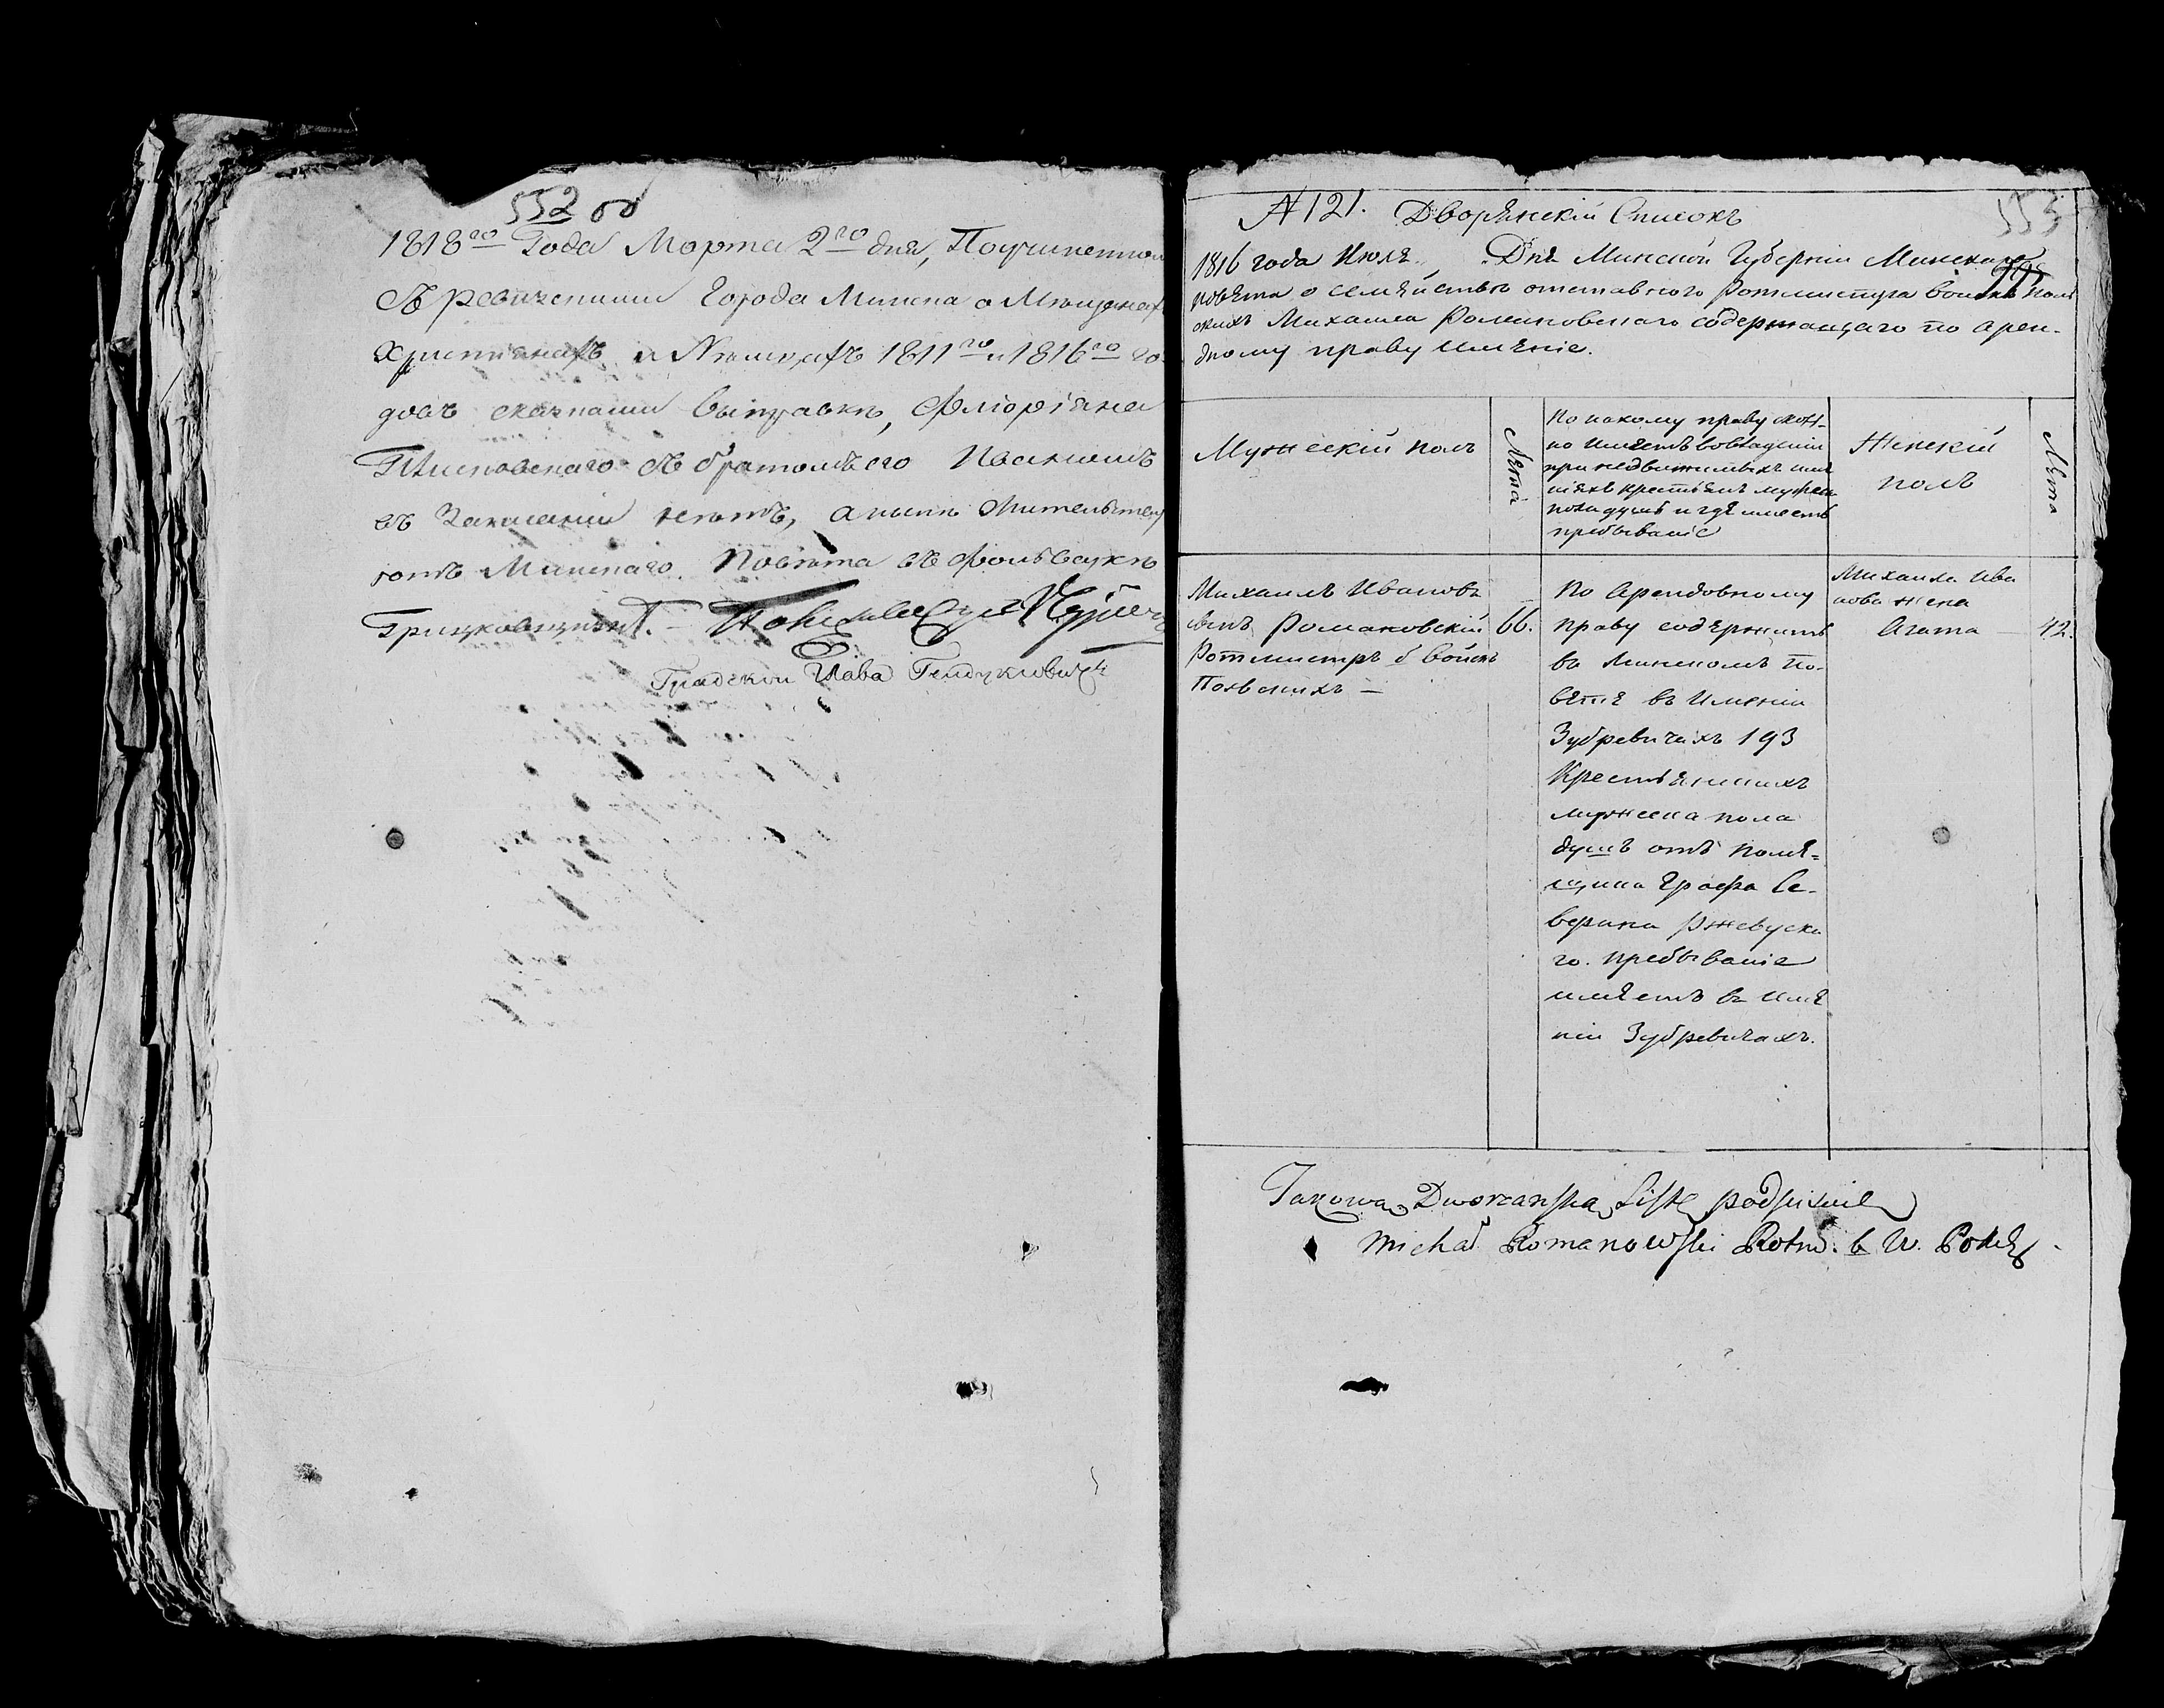 552 об
1818го Года Марта 2го дня, По учиненной
съ ревизскими Города Минска о Мещанахъ
Христианахъ и 1811го и 1816го го-
довъ сказками выправкѣ, Флioріяна
съ братомъ его Иваномъ
въ Записаніи нетъ, а нынѣ жительству
ютъ Минскаго Повѣта въ фольваркѣ
Градской Глава
№ 121. Дворянскій Списокъ
553
1816 года Июля Дня Минской Губерніи Минскаго
повѣта о семѣйствѣ отставного Ротмистра войскъ поль
скихъ Михаила Романовскаго содержащаго по арен-
дному праву имѣніе.
Мужескій полъ
Лѣта
По какому праву сколь-
ко имѣетъ во владѣніи
при недвижимыхъ имѣ
ніяхъ крестьянъ мужеска
пола душъ и гдѣ имѣетъ
пребываніе
Женскій
полъ
Лѣта
Михаилъ Ивановъ
сынъ Романовскій
Ротмистръ б войскъ
Польскихъ —
66.
По Арендовному
праву содержитъ
въ Минскомъ По-
вѣтѣ въ Имѣніи
Зубревичахъ 193
Крестьянскихъ
мужеска пола
душъ отъ помѣ-
щика Графа Се-
верина Ржевуска
го. пребываніе
имѣетъ въ имѣ
ніи Зубревичахъ.
Михаила Ива
нова жена
Агата —
42.
Takową Dworzanską Listę podpisuie
Michał Romanowski Rotm. b W. Polsk.